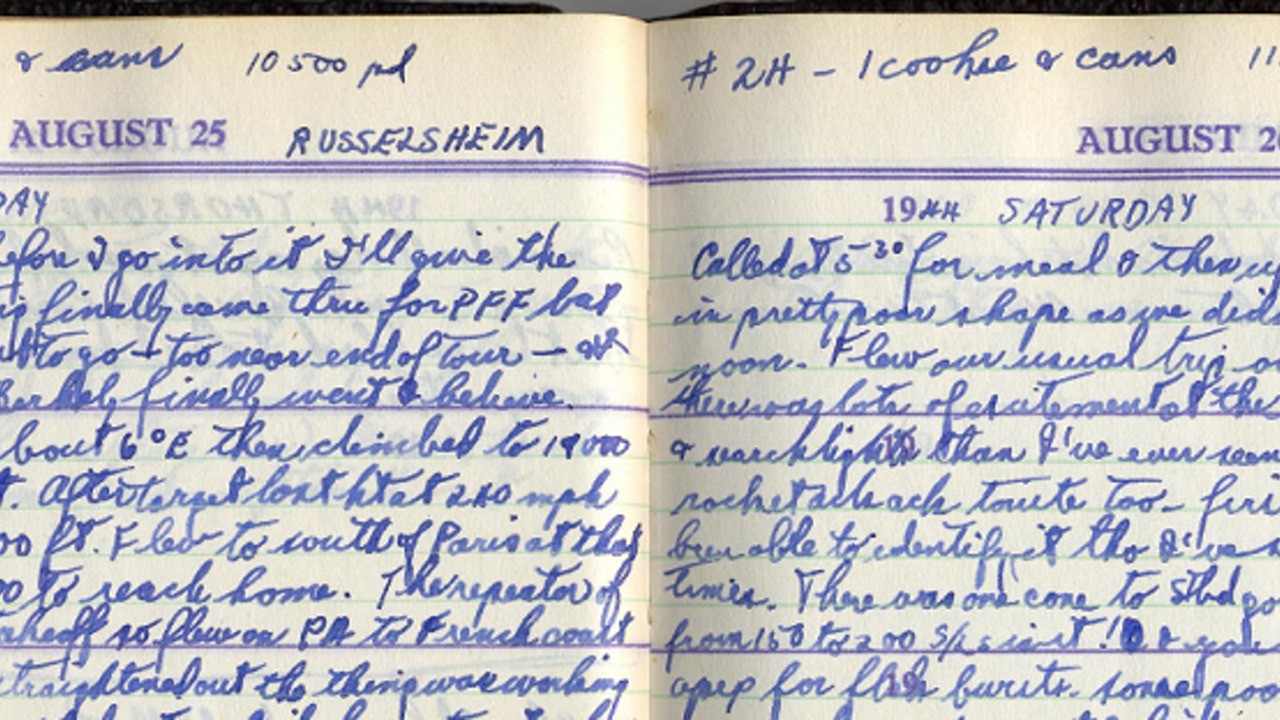 & cans 10500 pd
AUGUST 25 RUSSELSHEIM
DAY
before I go into it I'll give the
finally came thru for PFF but
to go - too near end of Tour -
finally went I believe.
about 6°E then climbed to 19000
After target lost ht at 240 mph
00 ft. Flew to south of Paris at that
00 to reach home. The repeater of
takeoff so flew on PA to French coast
straightened out tho the thing was working
# 2H - 1 cookie & cans 11
AUGUST 2
1944 SATURDAY
Called at 5-30 for meal & then
in pretty poor shape as we did
noon. Flew our usual trip
there was lots of excitement at the
& searchlights than I've ever seen
rocket attack tonite too - firs
been able to identify it tho I've
times. There was one cone to Stbd
from 150 to 200 S/Ls in it! & you
for flak bursts. some